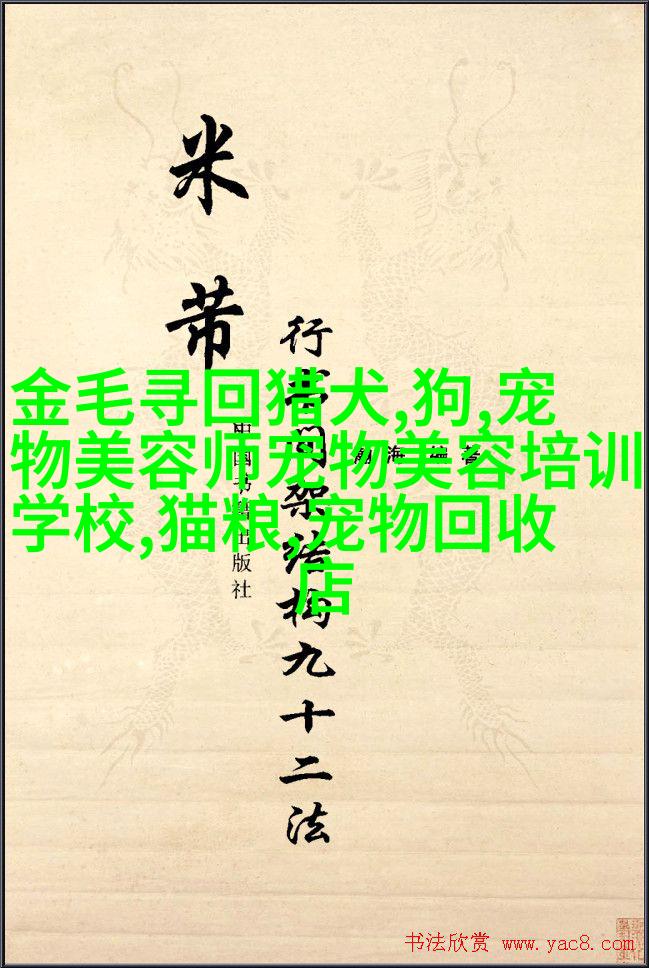 米芾
行书间架结构九十二法
金毛寻回猎犬,狗,宠
物美容师宠物美容培训
学校,猫粮,宠物回收
店
中国书
出版社
书法欣赏 www.yac8.com